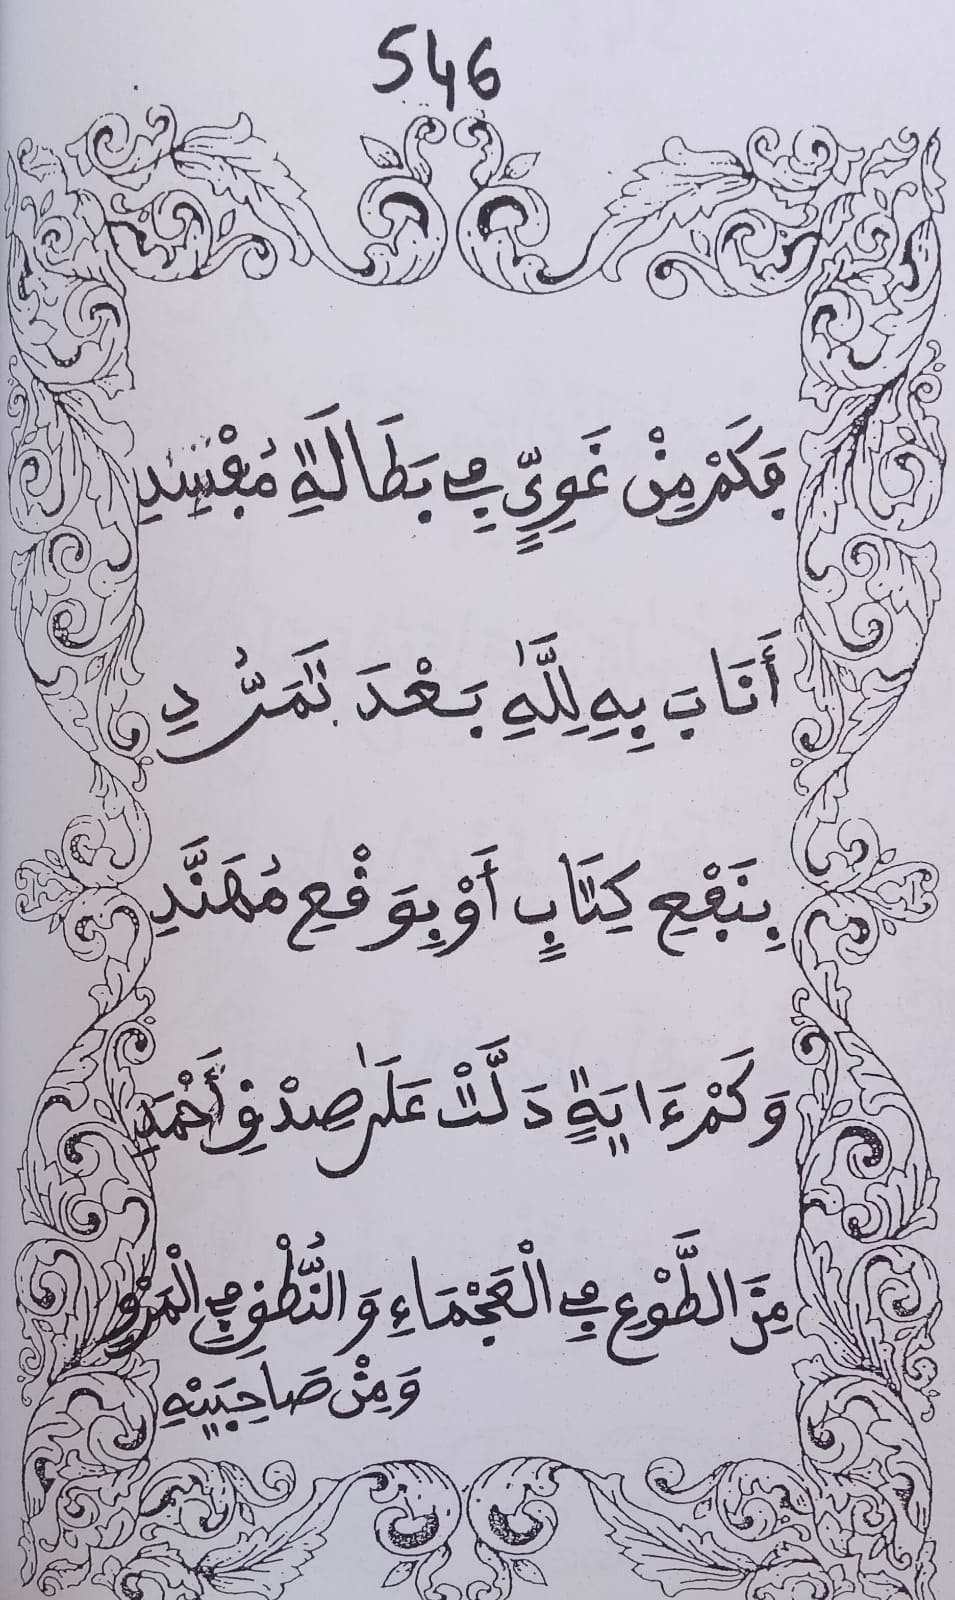 546
فَكَمْ مِنْ غَوِيٍّ فِي بَطَالَةٍ مُفْسِدِ
أَنَابَ بِهِ لِلَّهِ بَعْدَ تَمَرُّدِ
بِنَفْعِ كِتَابٍ أَوْ بِوَقْعِ مُهَنَّدِ
وَكَمْ ءَايَةٍ دَلَّتْ عَلَى صِدْقِ أَحْمَدِ
مِنَ الطَّوْعِ فِي الْعَجْمَاءِ وَالنُّطْقِ فِي الْمَرْوِ
وَمِنْ صَاحِبَيْهِ